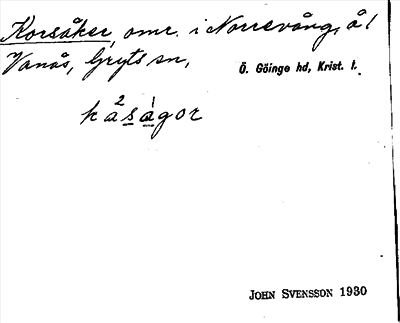 Korsåker, omr. i Norrevång, å 1
Vanås, Gryts sn,
Ö. Göinge hd, Krist. l.
ka²sa¹gor
JOHN SVENSSON 1930